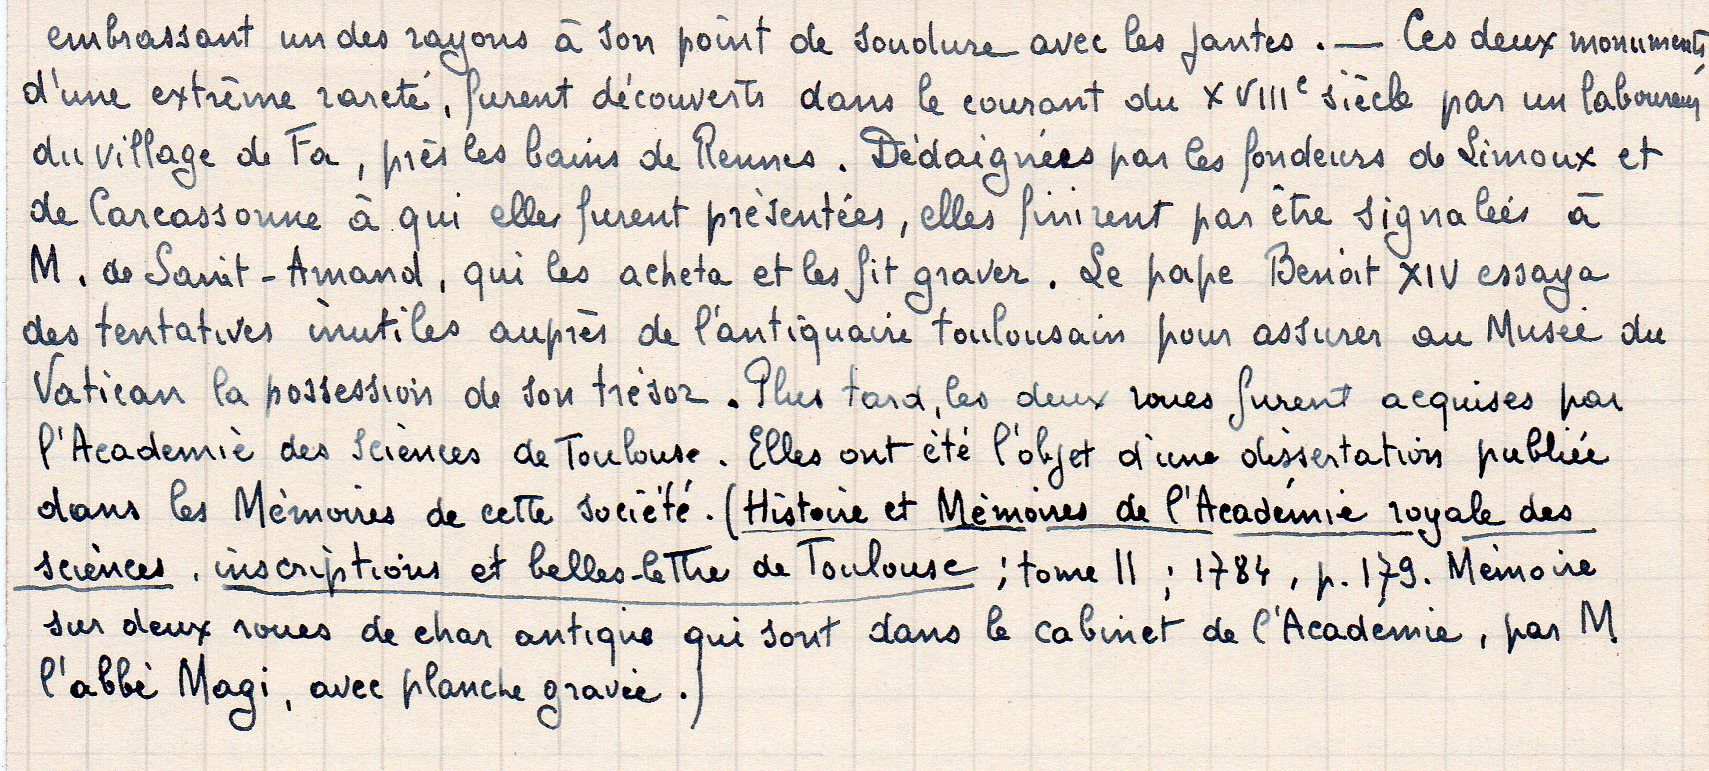 embrassant un des rayons à son point de soudure avec les jantes. — Ces deux monuments,
d'une extrême rareté, furent découverts dans le courant du XVIIIe siècle par un laboureur
du village de Fa, près les bains de Rennes. Dédaignées par les fondeurs de Limoux et
de Carcassonne à qui elles furent présentées, elles finirent par être signalées à
M. de Saint-Amand, qui les acheta et les fit graver. Le pape Benoit XIV essaya
des tentatives inutiles auprès de l'antiquaire toulousain pour assurer au Musée du
Vatican la possession de son trésor. Plus tard, les deux roues furent acquises par
l'Académie des Sciences de Toulouse. Elles ont été l'objet d'une dissertation publiée
dans les Mémoires de cette société. (Histoire et Mémoires de l'Académie royale des
sciences, inscriptions et belles-lettre de Toulouse ; tome II ; 1784, p. 179. Mémoire
sur deux roues de char antique qui sont dans le cabinet de l'Académie, par M.
l'abbé Magi, avec planche gravée.)